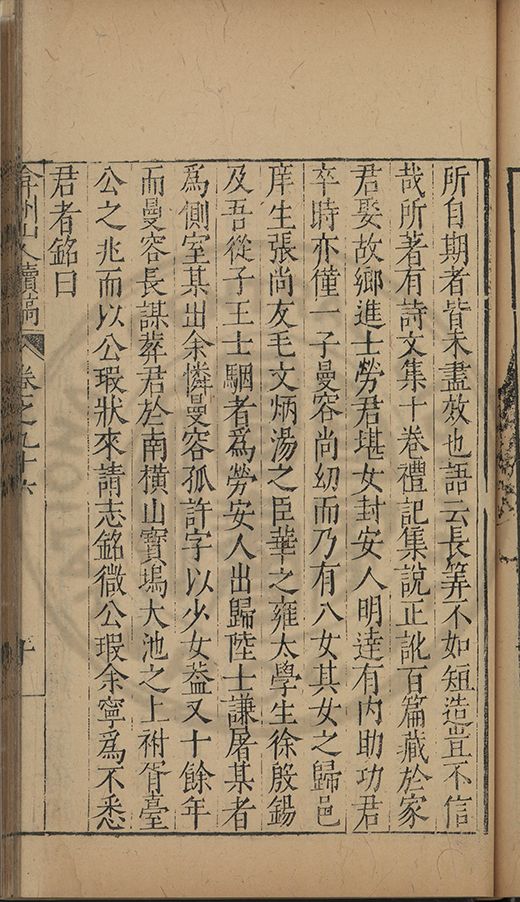 所自期者皆未盡效也語云長筭不如短造豈不信
哉所著有詩文集十卷禮記集說正訛百篇藏於家
君娶故鄉進士勞君堪女封安人明達有內助功君
卒時亦僅一子曼容尚幼而乃有八女其女之歸邑
庠生張尚友毛文炳湯之臣華之雍太學生徐殷錫
及吾從子王士駰者爲勞安人出歸陸士謙屠某者
爲側室某出余憐曼容孤許字以少女葢又十餘年
而曼容長謀葬君於南橫山寳塢大池之上祔胥臺
公之兆而以公瑕狀來請志銘微公瑕余寧爲不悉
君者銘曰
弇州山人續稿 卷之九十六